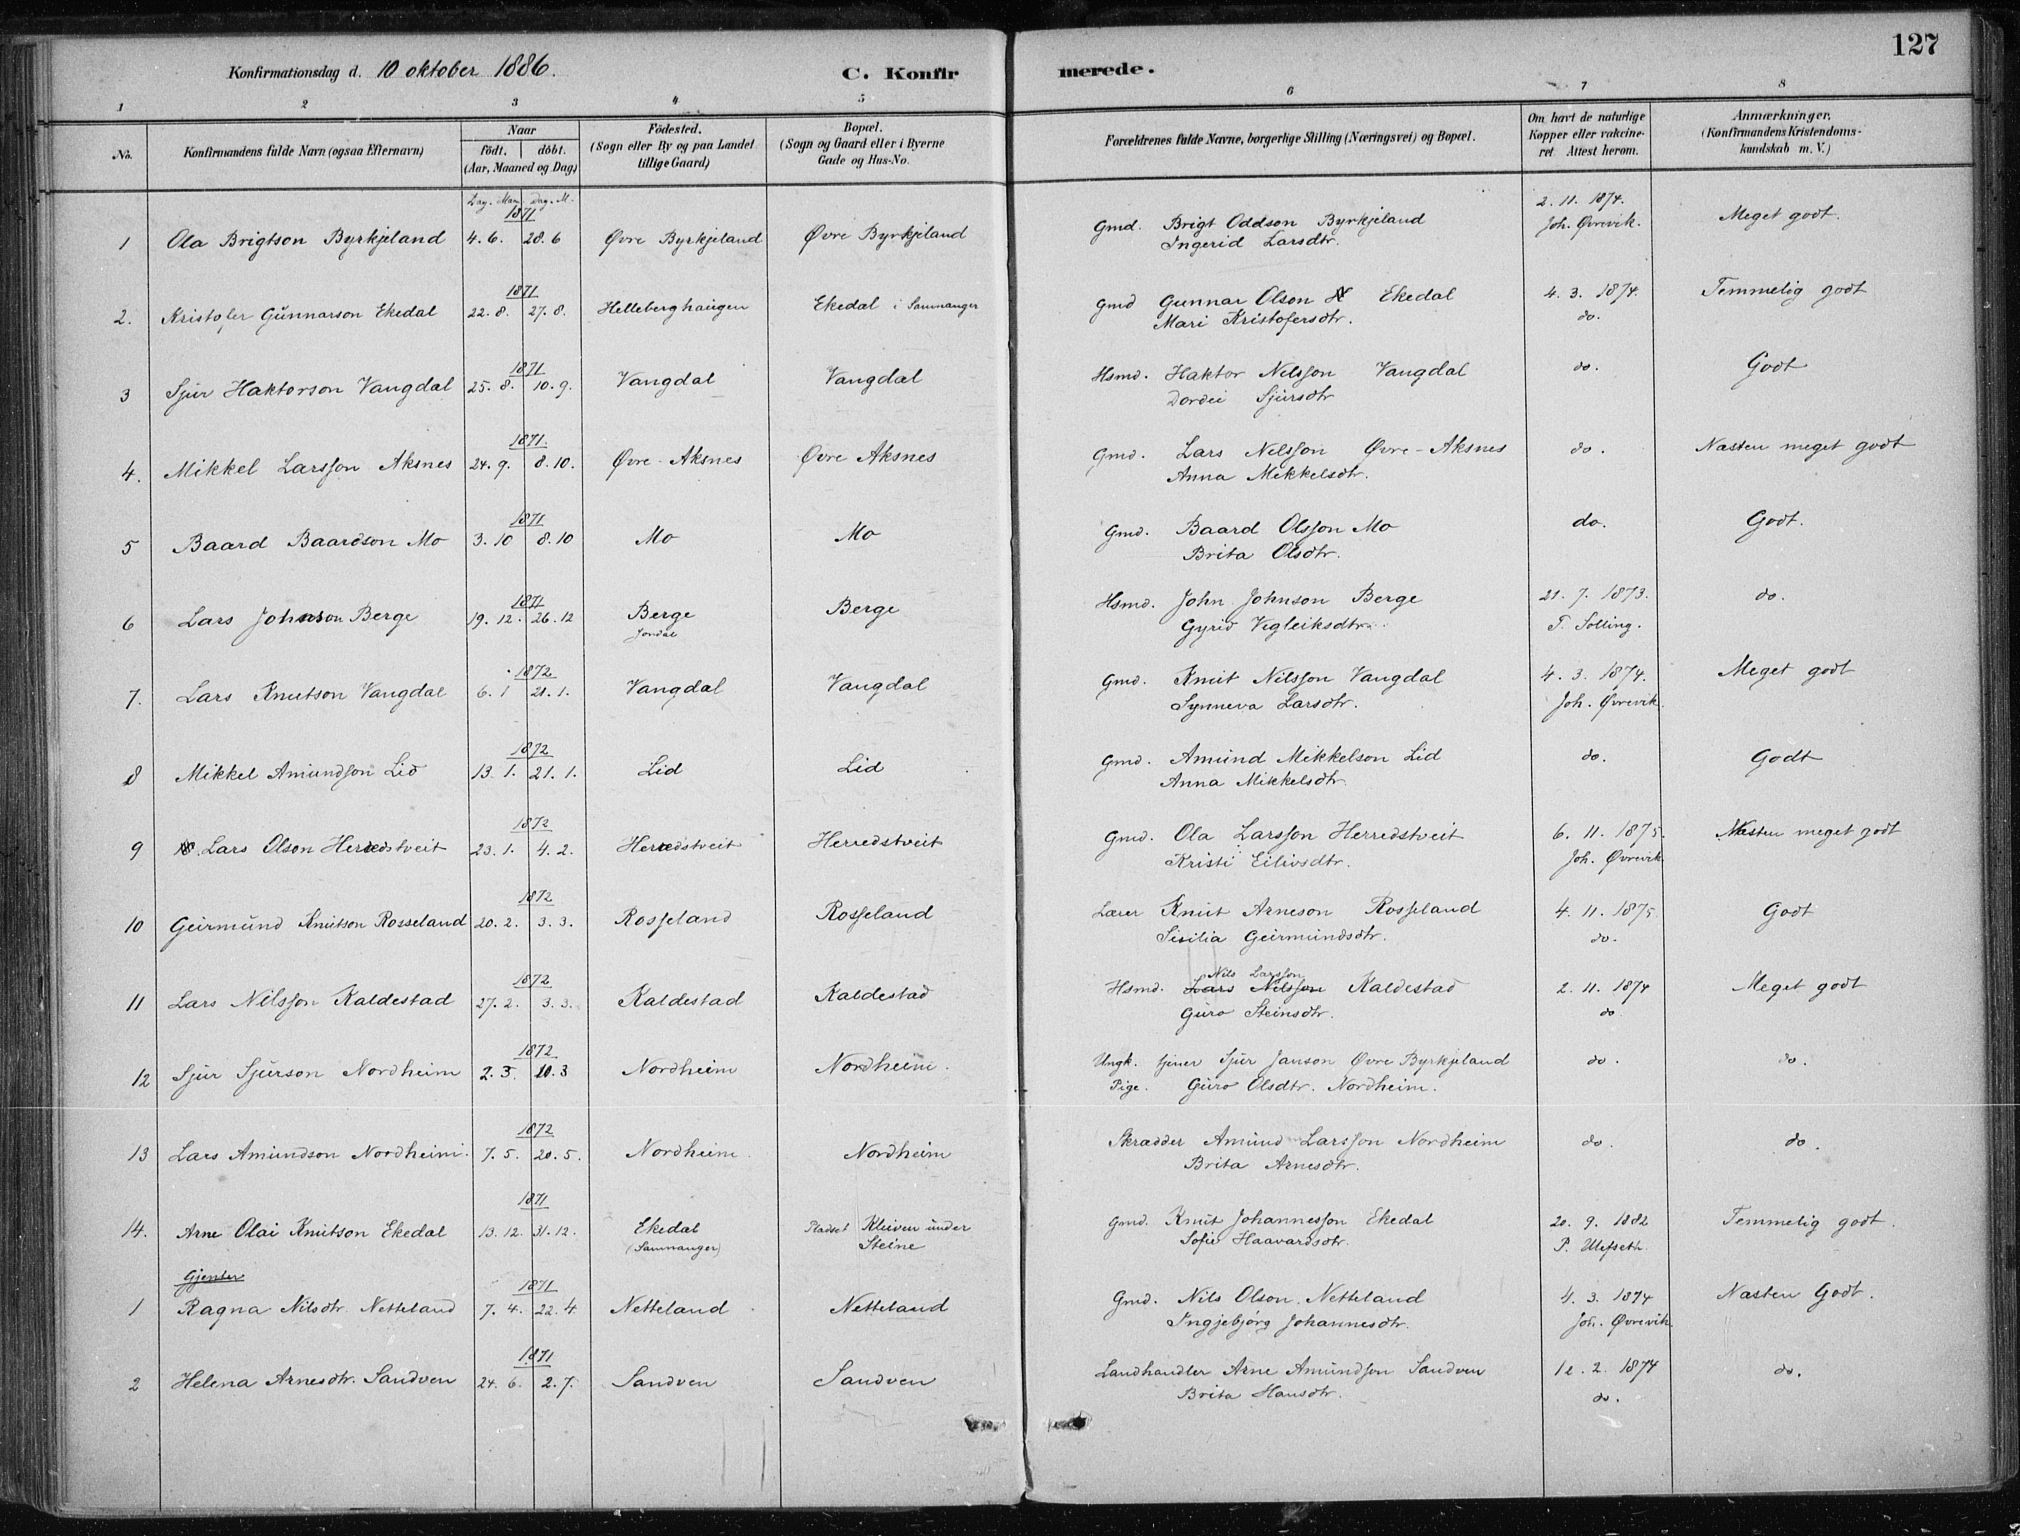 127
Konfirmationsdag d. 10 oktober 1886. C. Konfirmerede.
1 2 3 4 5 6 7 8
No. Konfirmandens fulde Navn (ogsaa Efternavn) Naar födt. döbt. (Aar, Maaned og Dag) Födested. (Sogn eller By og paa Landet tillige Gaard) Bopæl. (Sogn og Gaard eller i Byerne Gade og Hus-No. Forældrenes fulde Navne, borgerlige Stilling (Næringsvei) og Bopæl. Om havt de naturlige Kopper eller vakcineret. Attest herom. Anmærkninger, (Konfirmandens Kristendomskundskab m. V.)
Dag. Maan. Dag. M.
1871 2. 11. 1874.
1 Ola Brigtson Byrkjeland 4. 6. 28. 6 Øvre Byrkjeland Øvre Byrkjeland Gmd. Brigt Oddson Byrkjeland Joh. Øvrevik. Meget godt.
Ingerid Larsdtr.
1871
2. Kristofer Gunnarson Ekedal 22. 8. 27. 8. Helleberghaugen Ekedal i Samnanger Gmd Gunnar Olson Ekedal 4. 3. 1874. Temmelig godt
Mari Kristofersdtr. do.
1871
3 Sjur Haktorson Vangdal 25. 8. 10. 9. Vangdal Vangdal Hsmd. Haktor Nilsson Vangdal do. Godt
Dordei Sjursdtr
1871.
4. Mikkel Larsson Aksnes 24. 9. 8. 10. Øvre-Aksnes Øvre Aksnes Gmd. Lars Nilsson Øvre-Aksnes do. Næsten meget godt
Anna Mikkelsdtr.
1871
5 Baard Baardson Mo 3. 10 8. 10 Mo Mo Gmd. Baard Olsson Mo do. Godt.
Brita Olsdtr.
1871
6 Lars Johnson Berge 19. 12. 26. 12 Berge Berge Hsmd. John Johnson Berge 21. 7. 1873. do.
Jondal Gyrid Vegleiksdtr. T. Solling.
1872
7. Lars Knutson Vangdal 6. 1 21. 1. Vangdal Vangdal Gmd. Knut Nilsson Vangdal 4. 3. 1874. Meget godt
Synneva Larsdtr. Joh. Øvrevik
1872
8 Mikkel Amundson Lid 13. 1. 21. 1. Lid Lid Gmd. Amund Mikkelson Lid do. Godt
Anna Mikkelsdtr.
1872
9 Lars Olson Herredstveit 23. 1. 4. 2. Herredstveit Herredstveit Gmd. Ola Larsson Herredstveit 6. 11. 1875. Næsten meget godt
Kristi Eilivsdtr. Joh. Øvrevik
1872
10 Geirmund Knutson Rosseland 20. 2. 3. 3. Rosseland Rosseland Lærer Knut Arneson Rosseland 4. 11. 1875. Godt
Sisilia Geirmundsdtr. do.
1872 Nils Larsson
11 Lars Nilsson Kaldestad 27. 2. 3. 3. Kaldestad Kaldestad Hsmd. Lars Nilsson Kaldestad 2. 11. 1874 Meget godt
Guro Steinsdtr. do.
1872
12 Sjur Sjurson Nordheim 2. 3. 10. 3 Nordheim Nordheim. Ungk. tjener Sjur Janson Øvre Byrkjeland do. do.
Pige. Guro Olsdtr. Nordheim.
1872
13 Lars Amundson Nordheim. 7. 5. 20. 5. Nordheim. Nordheim Skrædder Amund Larsson Nordheim do. do.
Brita Arnesdtr.
1871
14. Arne Olai Knutson Ekedal 13. 12. 31. 12. Ekedal Pladset Kleiven under Gmd. Knut Johannesson Ekedal 20. 9. 1882 Temmelig godt.
(Samnanger) Steine Sofie Haavardsdtr. P. Ulefseth.
Gjenter
1871
1 Ragna Nilsdtr. Netteland 7. 4. 22. 4 Netteland Netteland Gmd. Nils Olson. Netteland 4. 3. 1874 Næsten Godt.
Ingjebjørg Johannesdtr. Joh. Øvrevik
1871
2 Helena Arnesdtr. Sandven 24. 6. 2. 7. Sandven Sandven Landhandler Arne Amundson Sandven 12. 2. 1874 do.
Brita Hansdtr. do.